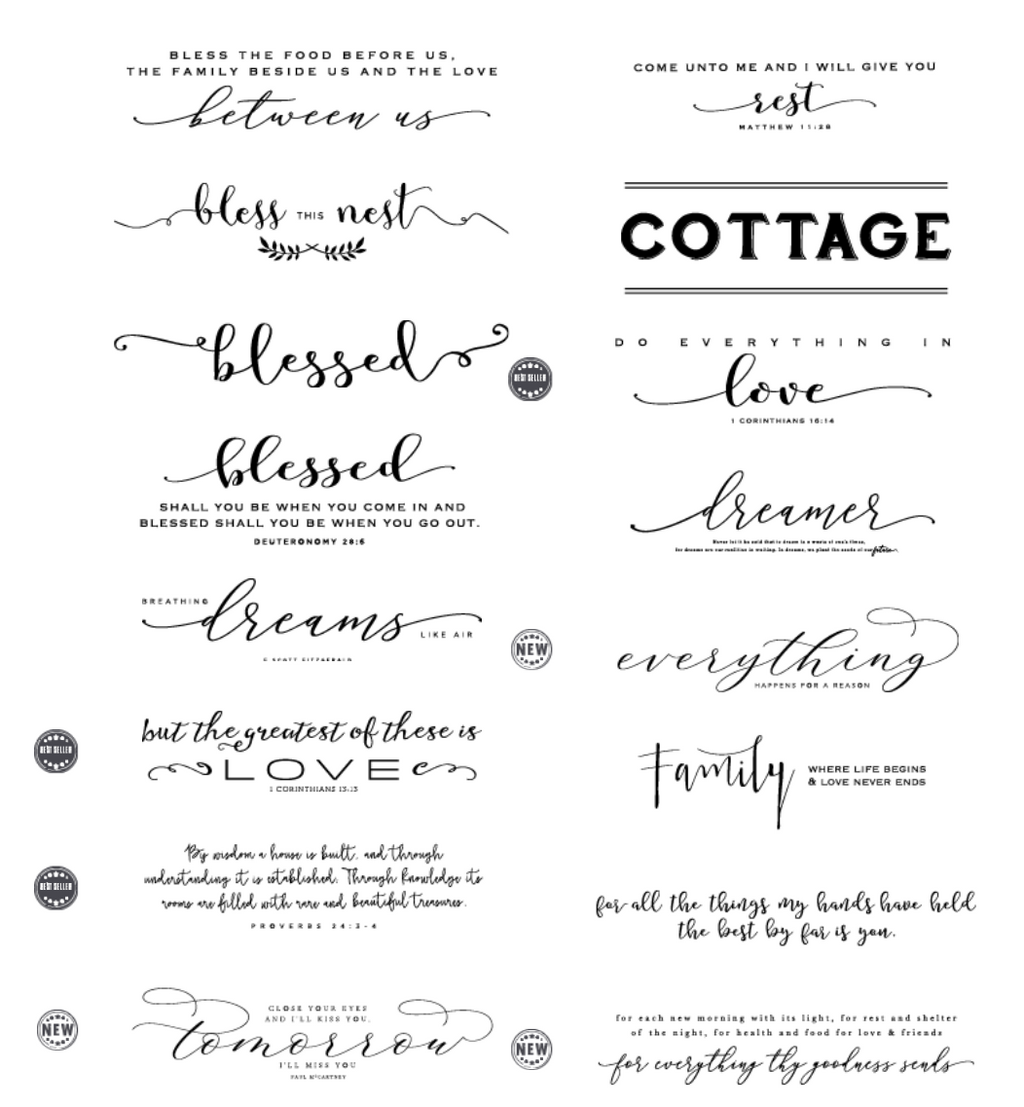 BLESS THE FOOD BEFORE US,
THE FAMILY BESIDE US AND THE LOVE
between us
bless THIS nest
blessed
BEST SELLER
blessed
SHALL YOU BE WHEN YOU COME IN AND
BLESSED SHALL YOU BE WHEN YOU GO OUT.
DEUTERONOMY 28:6
BREATHING
dreams
LIKE AIR
F. SCOTT FITZGERALD
NEW
BEST SELLER
but the greatest of these is
LOVE
1 CORINTHIANS 13:13
BEST SELLER
By wisdom a house is built, and through
understanding it is established. Through knowledge its
rooms are filled with rare and beautiful treasures.
PROVERBS 24:3-4
NEW
CLOSE YOUR EYES
AND I'LL KISS YOU,
tomorrow
I'LL MISS YOU
PAUL McCARTNEY
COME UNTO ME AND I WILL GIVE YOU
rest
MATTHEW 11:28
COTTAGE
DO EVERYTHING IN
love
1 CORINTHIANS 16:14
dreamer
Never let it be said that to dream is a waste of one's time,
for dreams are our realities in waiting. In dreams, we plant the seeds of our future.
everything
HAPPENS FOR A REASON
Family
WHERE LIFE BEGINS
& LOVE NEVER ENDS
for all the things my hands have held
the best by far is you.
NEW
for each new morning with its light, for rest and shelter
of the night, for health and food for love & friends
for everything thy goodness sends